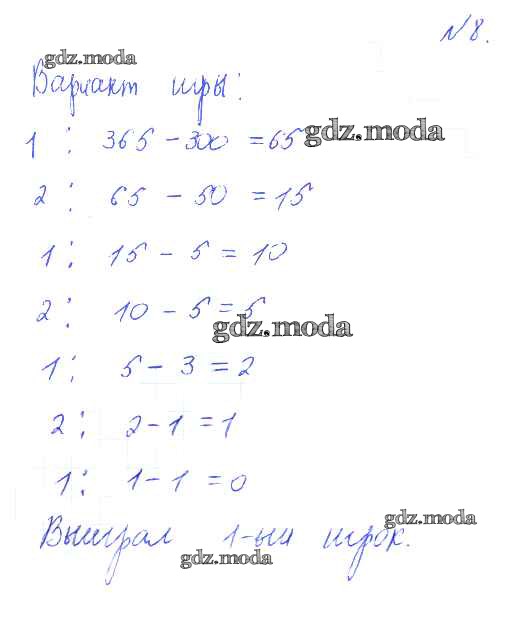 № 8.
gdz.moda
Вариант игры:
1 : 365 - 300 = 65 gdz.moda
2 : 65 - 50 = 15
1 : 15 - 5 = 10
2 : 10 - 5 = 5
gdz.moda
1 : 5 - 3 = 2
2 : 2 - 1 = 1
1 : 1 - 1 = 0
gdz.moda
Выиграл 1-ый игрок.
gdz.moda